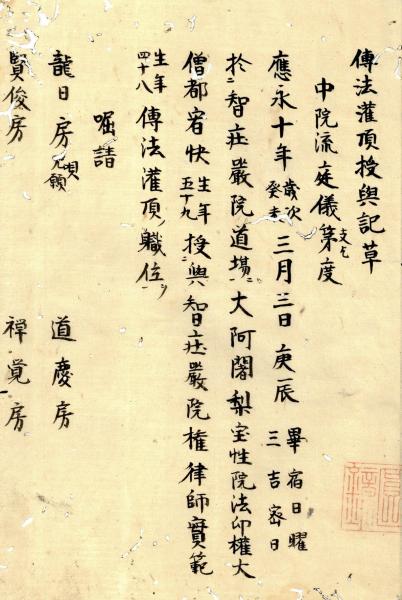 傳法灌頂授與記草
中院流庭儀第度
應永十年歲次癸未三月三日庚辰畢宿日曜三吉宻日
於智荘嚴院道場大阿闍梨宝性院法印權大
僧都宥快生年五十九授與智荘嚴院權律師實範
生年四十八傳法灌頂職位
啒請
龍日房唄元願 道慶房
賢俊房 禅覚房